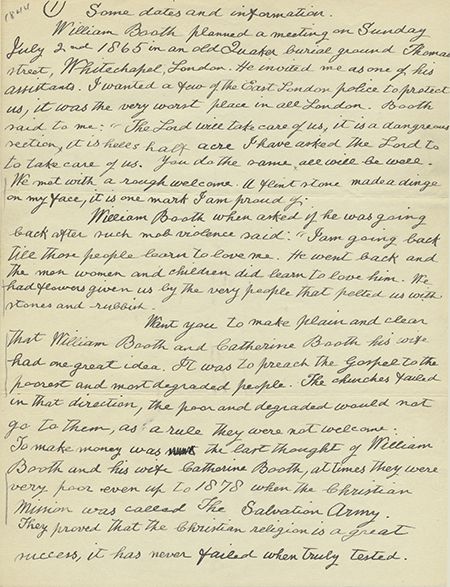 1844
(1) Some dates and information.
William Booth planned a meeting on Sunday
July 2nd 1865 in an old Quaker burial ground Thomas
street, Whitechapel, London. He invited me as one of his
assistants. I wanted a few of the East London police to protect
us, it was the very worst place in all London. Booth
said to me: "The Lord will take care of us, it is a dangreous
section, it is hells half acre I have asked the Lord to
to take care of us. You do the same all will be well.
We met with a rough welcome. A flint stone made a dinge
on my face, it is one mark I am proud of.
William Booth when asked if he was going
back after such mob violence said: "I am going back
till those people learn to love me. He went back and
the men women and children did learn to love him. We
had flowers given us by the very people that pelted us with
stones and rubbish.
Want you to make plain and clear
that William Booth and Catherine Booth his wife
had one great idea. It was to preach the Gospel to the
poorest and most degraded people. The churches failed
in that direction, the poor and degraded would not
go to them, as a rule they were not welcome.
To make money was the last thought of William
Booth and his wife Catherine Booth, at times they were
very poor even up to 1878 when the Christian
Mission was called The Salvation Army.
They proved that the Christian religion is a great
success, it has never failed when truly tested.